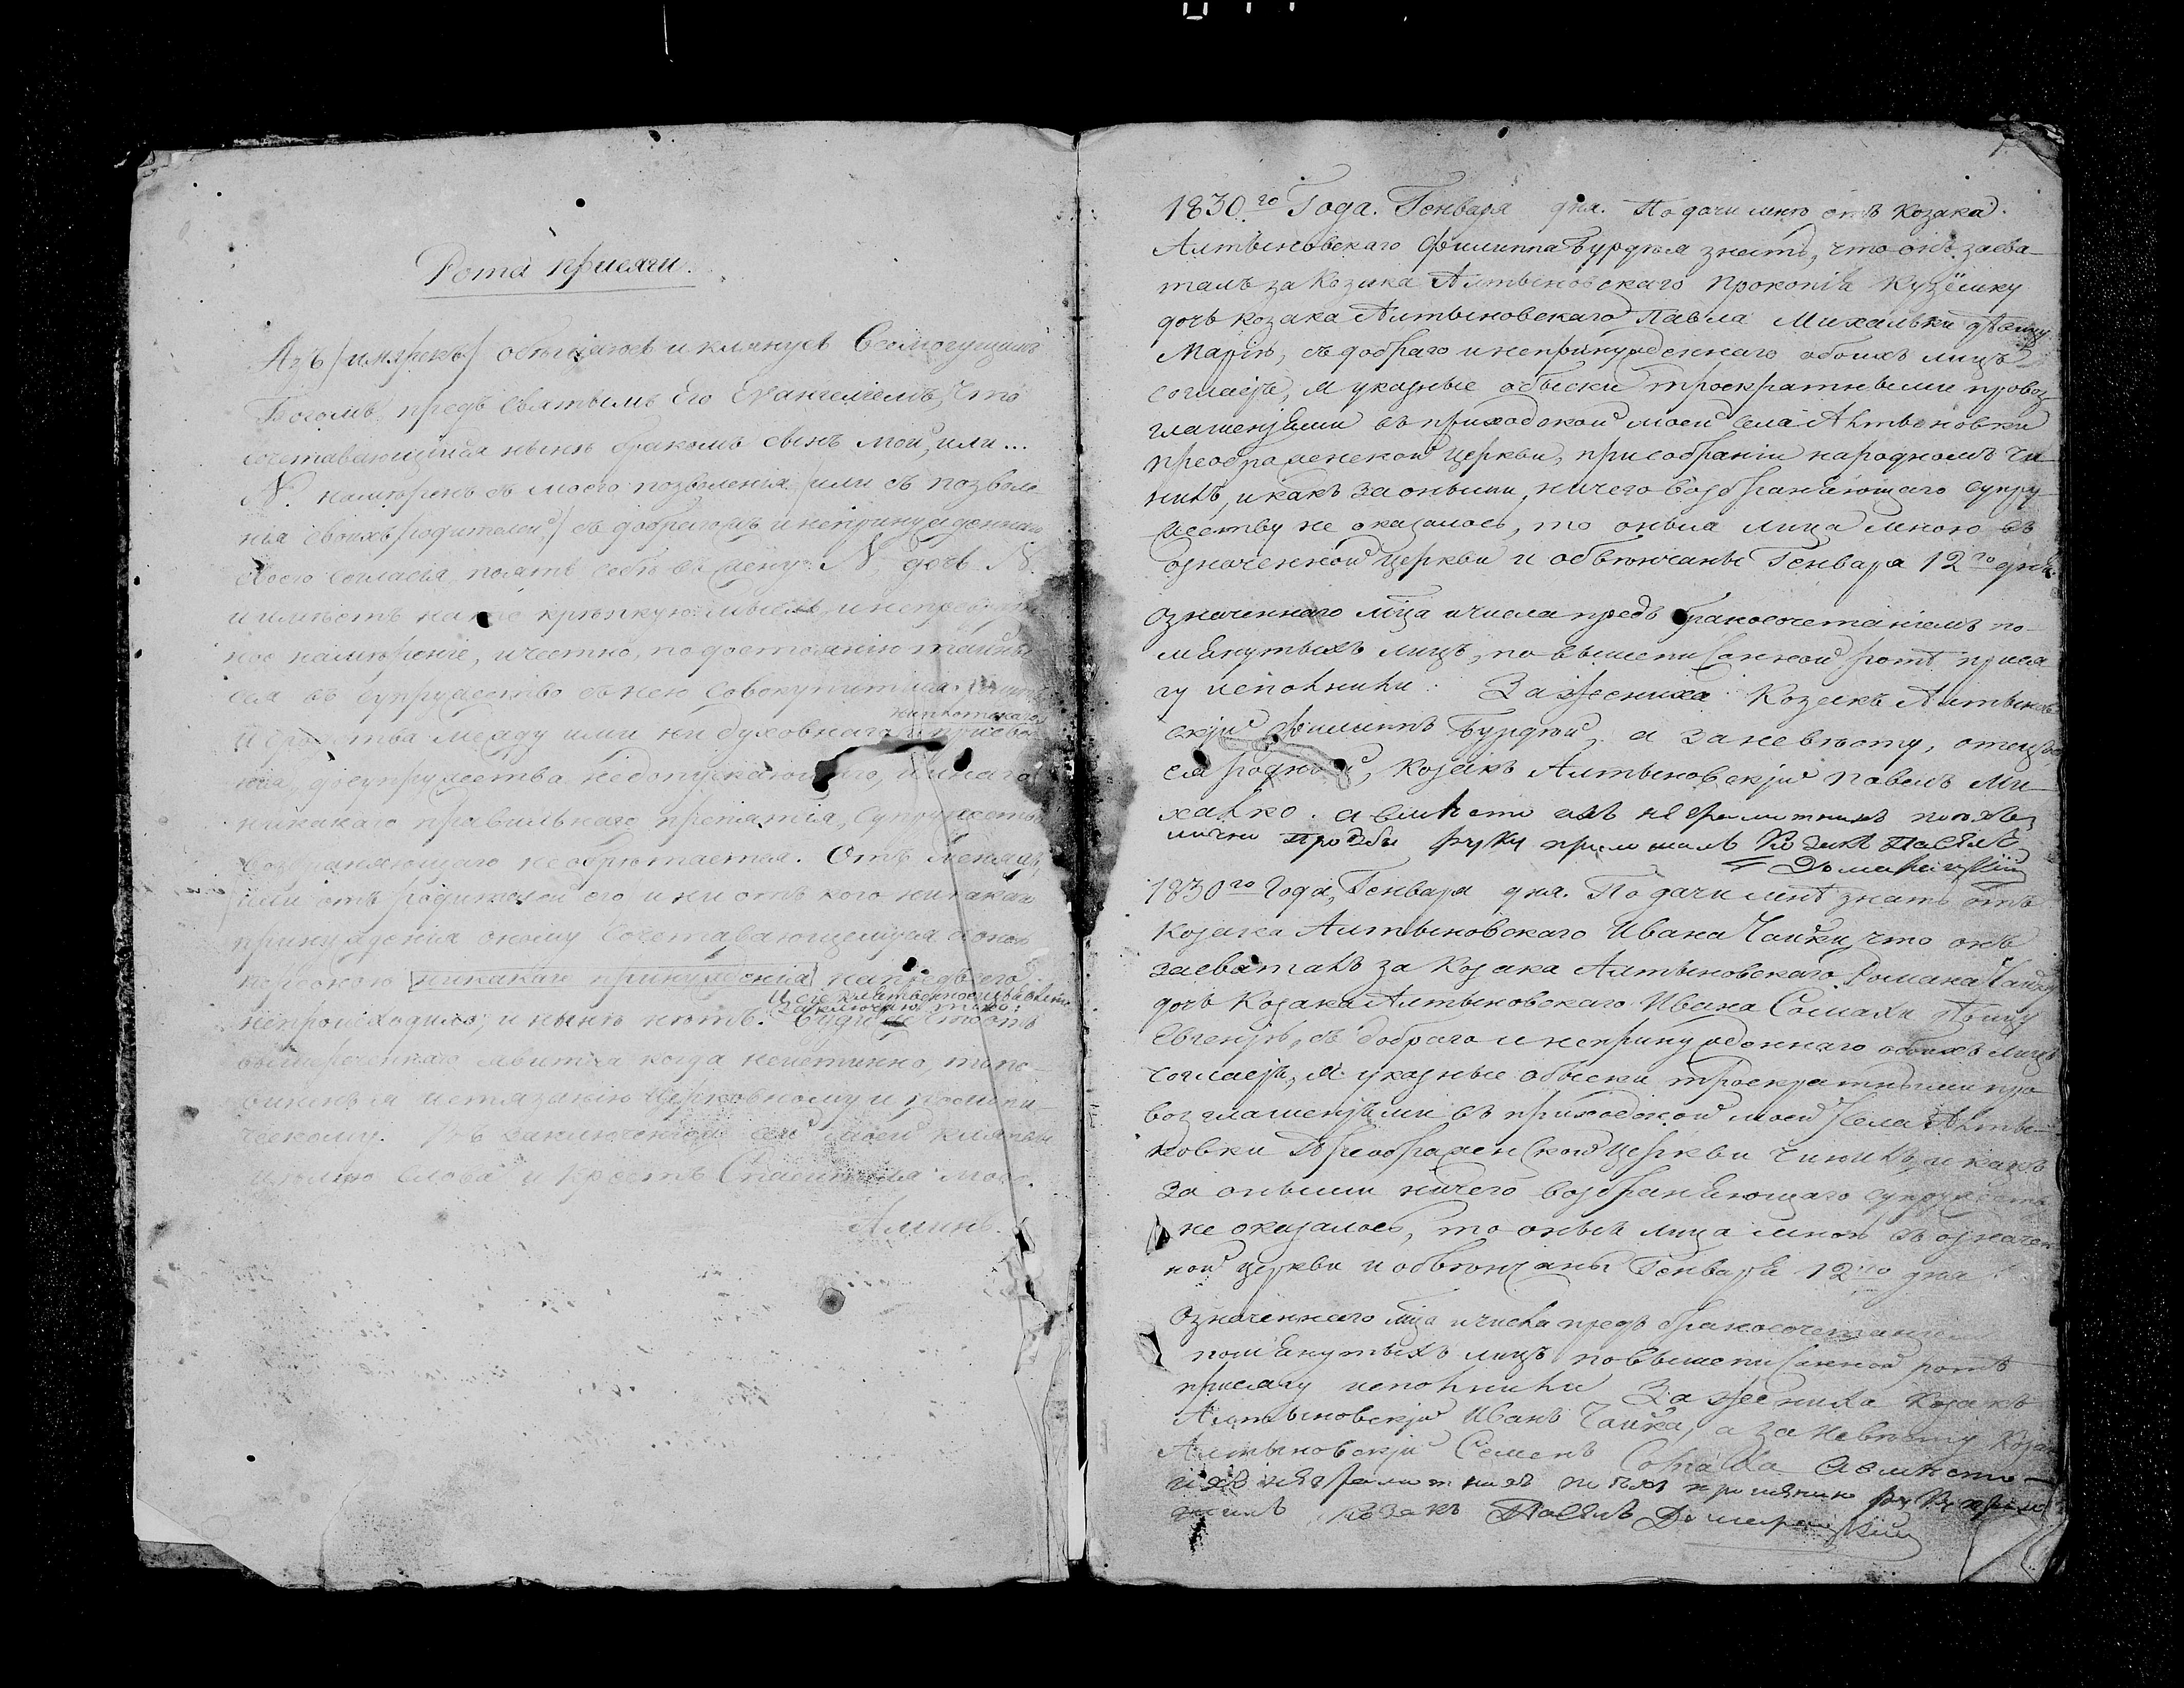 Рота присяги.
Азъ /имярекъ/ обѣщаюсь и клянусь Всемогущимъ
Богомъ, предъ Святымъ Его Евангелиемъ, что
сочетавающійся нынѣ бракомъ сынъ мой, или...
N. намѣренъ съ моего позволенія /или съ позволе-
нія своихъ родителей,/ съ добраго и непринужденнаго
своего согласія, поять себѣ въ жену N. дочь N.
и имѣетъ на то крѣпкую мысль, и
ное намѣреніе, и честно, по достоянію тайны
сея въ супружество съ нею совокупитися.
ни плотскаго
родства между ими ни духовнаго
нія, до супружества недопускающаго, и инаго
никакаго правильнаго препятія, супружество
возбраняющаго не обрѣтается. Отъ мене
или отъ родителей его и ни отъ кого никакаго
принужденія оному сочетавающемуся
никакаго принужденія напредъ сего
непроисходило, и нынѣ нѣтъ.
явится когда неистинно, то по-
виненъ истязанію церковному и
ческому. Въ заключеніи сей моей клятвы
цѣлую слова и крестъ Спасителя моего.
Аминь.
1830.го Года. Генваря дня. По дачи мнѣ отъ козака
Алтыновскаго Филиппа Бурдѣя знать, что онъ засва-
талъ за козака Алтыновскаго Прокопія
дочь козака Алтыновскаго Павла Михалька дѣвицу
Марію, съ добраго и непринужденнаго обоихъ лицъ
согласія, я указные обыски троекратными провоз-
глашеніями въ приходской моей села Алтыновки
Преображенской церкви, при собраніи народномъ чи-
нилъ, и какъ за оными, ничего возбраняющаго супру-
жеству не оказалось, то оныя лица мною въ
означенной церкви и обвѣнчаны Генваря 12го дня.
Означеннаго мца и числа предъ бракосочетаніемъ по-
мянутыхъ лицъ, по вышеписанной ротѣ прися-
гу исполнили: За жениха козакъ Алтынов-
скій Филиппъ Бурдѣй, а за невѣсту, отецъ
ея родный, козакъ Алтыновскій Павелъ Ми-
халко. а вмѣсто ихъ неграмотныхъ по ихъ
личной прозбы руку приложилъ козакъ Павелъ
1830го Года, Генваря дня. По дачи мнѣ знать отъ
козака Алтыновскаго Ивана Чайки, что онъ
засваталъ за козака Алтыновскаго Романа Чайку
дочь козака Алтыновскаго Ивана Сомахи дѣвицу
Евгенію, съ добраго и непринужденнаго обоихъ лицъ
согласія, я указные обыски троекратными про-
возглашеніями въ приходской моей села Алты-
новки Преображенской церкви чинилъ, и какъ
за оными ничего возбраняющаго супружеству
не оказалось, то оныя лица мною въ означен-
ной церкви и обвѣнчаны Генваря 12го дня.
Означеннаго мца и числа предъ бракосочетаніемъ
помянутыхъ лицъ по вышеписанной ротѣ
присягу исполнили За жениха козакъ
Алтыновскій Иванъ Чайка, а за невѣсту козакъ
Алтыновскій Семенъ Сомаха а вмѣсто
ихъ неграмотныхъ по ихъ прошенію руку прило-
жилъ козакъ Павелъ